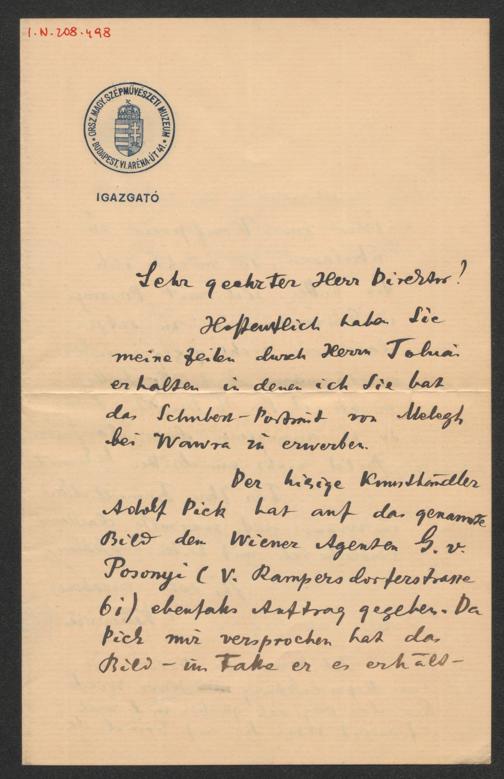 I.N. 208.498
ORSZ. MAGY. SZÉPMŰVÉSZETI MÚZEUM
BUDAPEST, VI. ARÉNA-ÚT 41.
IGAZGATÓ
Sehr geehrter Herr Direktor!
Hoffentlich haben Sie
meine Zeilen durch Herrn
erhalten in denen ich Sie bat
das Schubert-Portrait von Melegh
bei Wawra zu erwerben.
Der hiesige Kunsthändler
Adolf Pick hat auf das genannte
Bild dem Wiener Agenten G. v.
Posonyi (V. Rampersdorferstrasse
61) ebenfalls Auftrag gegeben. Da
Pick mir versprochen hat das
Bild – im Falle er es erhält –